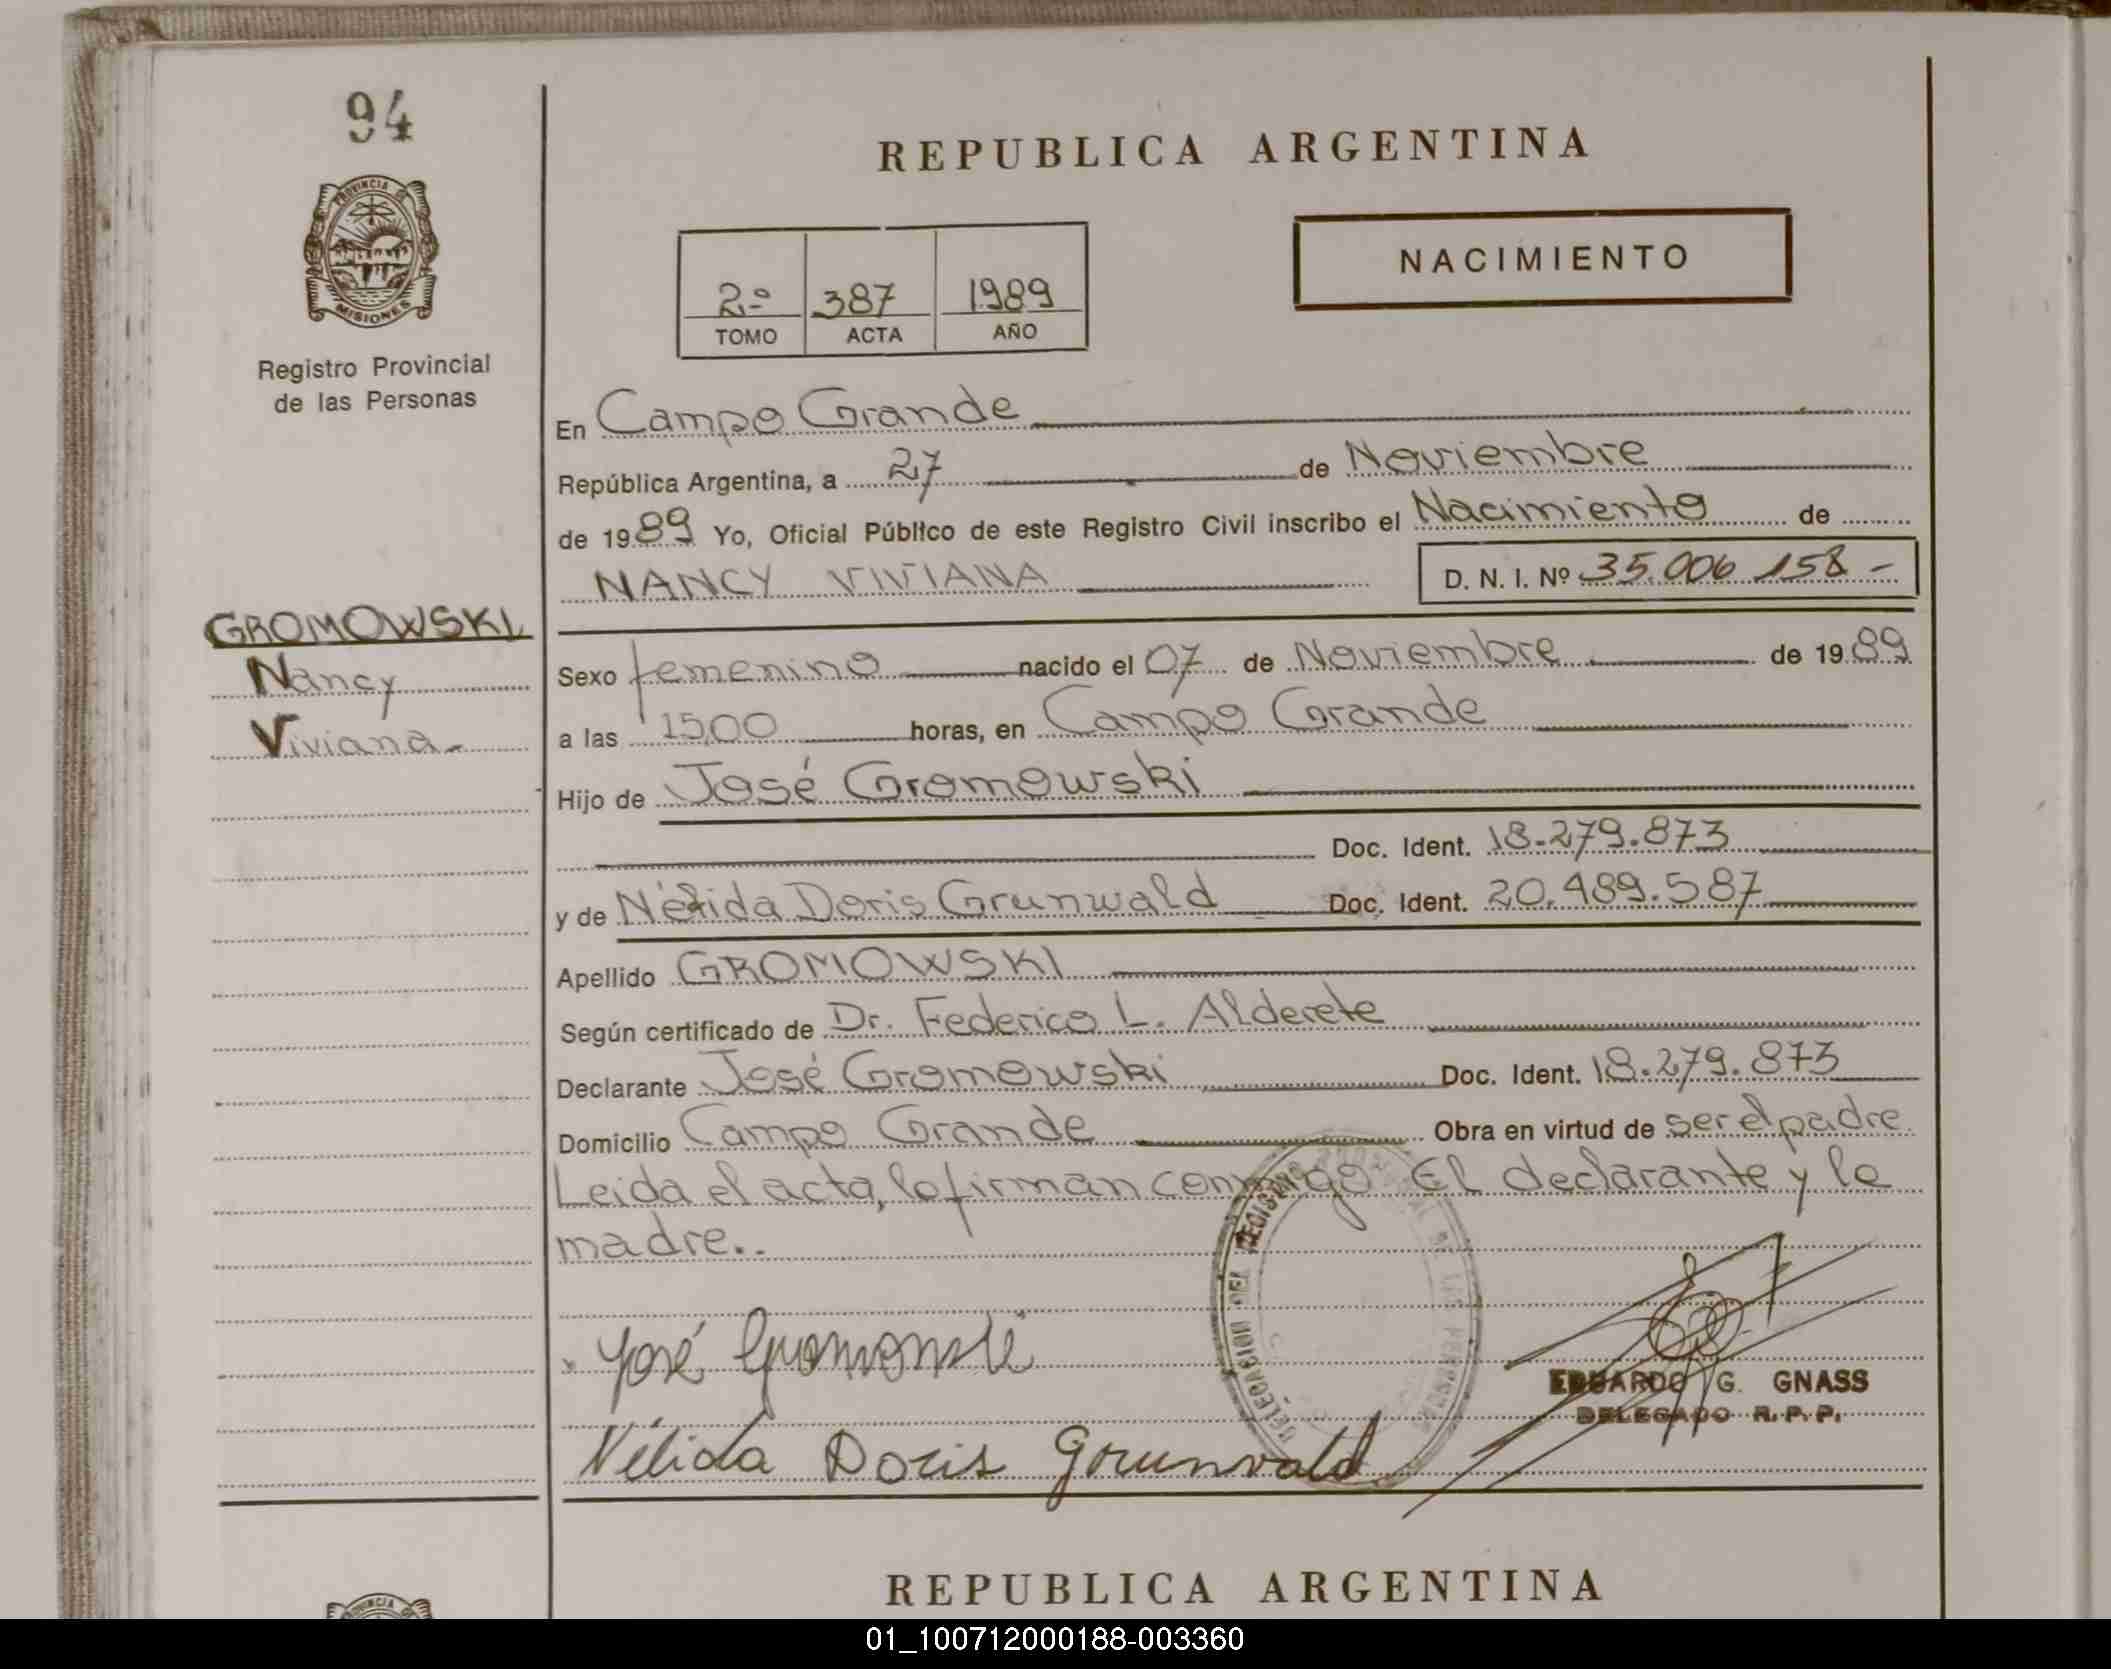 94
REPUBLICA ARGENTINA
PROVINCIA DE
MISIONES
Registro Provincial
de las Personas
2º 387 1989
TOMO ACTA AÑO
NACIMIENTO
En Campo Grande
República Argentina, a 27 de Noviembre
de 1989 Yo, Oficial Público de este Registro Civil inscribo el Nacimiento de
NANCY VIVIANA D. N. I. Nº 35.006.158-
GROMOWSKI
Nancy
Viviana.-
Sexo femenino nacido el 07 de Noviembre de 1989
a las 15,00 horas, en Campo Grande
Hijo de José Gromowski
Doc. Ident. 18.279.873
y de Nélida Doris Grunwald Doc. Ident. 20.489.587
Apellido GROMOWSKI
Según certificado de Dr. Federico L. Alderete
Declarante José Gromowski Doc. Ident. 18.279.873
Domicilio Campo Grande Obra en virtud de ser el padre
Leida el acta, lo firman conmigo El declarante y la
madre..
José Gromowski
Nélida Doris Grunvald
DELEGACION DEL REGISTRO PROVINCIAL DE LAS PERSONAS
EDUARDO G. GNASS
DELEGADO R.P.P.
REPUBLICA ARGENTINA
01_100712000188-003360